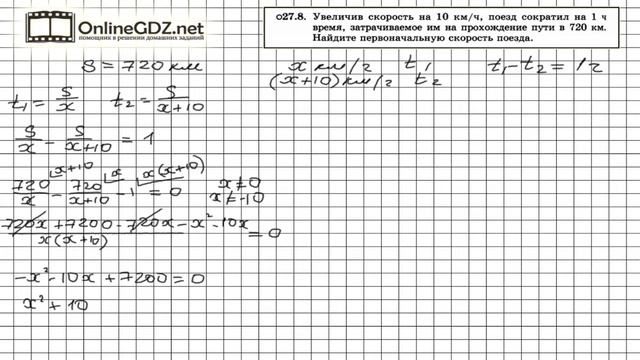 OnlineGDZ.net
помощник в решении домашних заданий
О27.8. Увеличив скорость на 10 км/ч, поезд сократил на 1 ч
время, затрачиваемое им на прохождение пути в 720 км.
Найдите первоначальную скорость поезда.
S = 720 км x км/ч t₁ t₁ - t₂ = 1 ч
(x+10) км/ч t₂
t₁ = S/x t₂ = S/(x+10)
S/x - S/(x+10) = 1
720/x - 720/(x+10) - 1 = 0 x ≠ 0
x+10 x x(x+10) x ≠ -10
(720x + 7200 - 720x - x² - 10x)/(x(x+10)) = 0
-x² - 10x + 7200 = 0
x² + 10